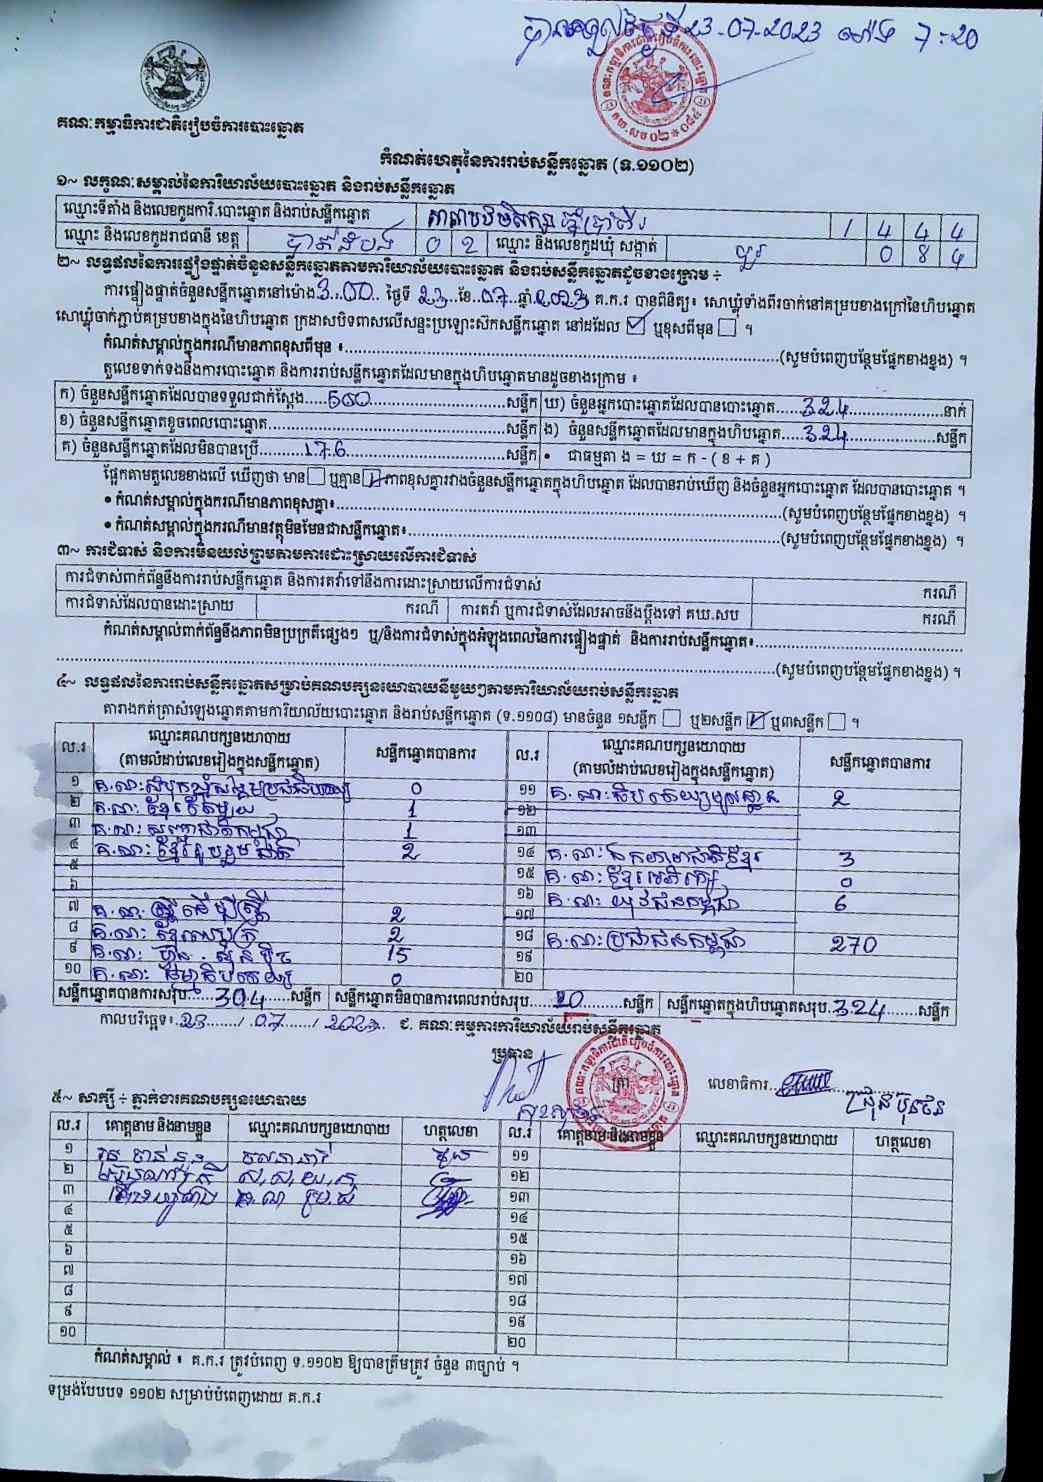 23-07-2023 ម៉ោង 7:20
គណៈកម្មាធិការជាតិរៀបចំការបោះឆ្នោត
កំណត់ហេតុនៃការរាប់សន្លឹកឆ្នោត (ទ.១១០២)
១~ លក្ខណៈសម្គាល់នៃការិយាល័យបោះឆ្នោត និងរាប់សន្លឹកឆ្នោត
ឈ្មោះទីតាំង និងលេខកូដការិ.បោះឆ្នោត និងរាប់សន្លឹកឆ្នោត 1 4 4 4
ឈ្មោះ និងលេខកូដរាជធានី ខេត្ត បាត់ដំបង 0 2 ឈ្មោះ និងលេខកូដឃុំ សង្កាត់ 0 8 4
២~ លទ្ធផលនៃការផ្ទៀងផ្ទាត់ចំនួនសន្លឹកឆ្នោតតាមការិយាល័យបោះឆ្នោត និងរាប់សន្លឹកឆ្នោតដូចខាងក្រោម ÷
ការផ្ទៀងផ្ទាត់ចំនួនសន្លឹកឆ្នោតនៅម៉ោង 3:00 ថ្ងៃទី 23 ខែ 07 ឆ្នាំ 2023 គ.ក.រ បានពិនិត្យ៖ សោឃ្លុំទាំងពីរចាក់នៅគម្របខាងក្រៅនៃហិបឆ្នោត
សោឃ្លុំចាក់ភ្ជាប់គម្របខាងក្នុងនៃហិបឆ្នោត ក្រដាសបិទពាសលើសន្ទះប្រឡោះស៊កសន្លឹកឆ្នោត នៅដដែល ☑ ឬខុសពីមុន ☐ ។
កំណត់សម្គាល់ក្នុងករណីមានភាពខុសពីមុន ៖ (សូមបំពេញបន្ថែមផ្នែកខាងខ្នង) ។
តួលេខទាក់ទងនឹងការបោះឆ្នោត និងការរាប់សន្លឹកឆ្នោតដែលមានក្នុងហិបឆ្នោតមានដូចខាងក្រោម ៖
ក) ចំនួនសន្លឹកឆ្នោតដែលបានទទួលជាក់ស្តែង 500 សន្លឹក ឃ) ចំនួនអ្នកបោះឆ្នោតដែលបានបោះឆ្នោត 324 នាក់
ខ) ចំនួនសន្លឹកឆ្នោតខូចពេលបោះឆ្នោត សន្លឹក ង) ចំនួនសន្លឹកឆ្នោតដែលមានក្នុងហិបឆ្នោត 324 សន្លឹក
គ) ចំនួនសន្លឹកឆ្នោតដែលមិនបានប្រើ 176 សន្លឹក • ជាធម្មតា ង = ឃ = ក - ( ខ + គ )
ផ្អែកតាមតួលេខខាងលើ ឃើញថា មាន ☐ ឬគ្មាន ☑ ភាពខុសគ្នារវាងចំនួនសន្លឹកឆ្នោតក្នុងហិបឆ្នោត ដែលបានរាប់ឃើញ និងចំនួនអ្នកបោះឆ្នោត ដែលបានបោះឆ្នោត ។
• កំណត់សម្គាល់ក្នុងករណីមានភាពខុសគ្នា៖ (សូមបំពេញបន្ថែមផ្នែកខាងខ្នង) ។
• កំណត់សម្គាល់ក្នុងករណីមានវត្ថុមិនមែនជាសន្លឹកឆ្នោត៖ (សូមបំពេញបន្ថែមផ្នែកខាងខ្នង) ។
៣~ ការជំទាស់ និងការមិនយល់ព្រមតាមការដោះស្រាយលើការជំទាស់
ការជំទាស់ពាក់ព័ន្ធនឹងការរាប់សន្លឹកឆ្នោត និងការតវ៉ាទៅនឹងការដោះស្រាយលើការជំទាស់ ករណី
ការជំទាស់ដែលបានដោះស្រាយ ករណី ការតវ៉ា ឬការជំទាស់ដែលអាចនឹងប្តឹងទៅ គឃ.សប ករណី
កំណត់សម្គាល់ពាក់ព័ន្ធនឹងភាពមិនប្រក្រតីផ្សេងៗ ឬ/និងការជំទាស់ក្នុងអំឡុងពេលនៃការផ្ទៀងផ្ទាត់ និងការរាប់សន្លឹកឆ្នោត៖
(សូមបំពេញបន្ថែមផ្នែកខាងខ្នង) ។
៤~ លទ្ធផលនៃការរាប់សន្លឹកឆ្នោតសម្រាប់គណបក្សនយោបាយនីមួយៗតាមការិយាល័យរាប់សន្លឹកឆ្នោត
តារាងកត់ត្រាសំឡេងឆ្នោតតាមការិយាល័យបោះឆ្នោត និងរាប់សន្លឹកឆ្នោត (ទ.១១០៨) មានចំនួន ១សន្លឹក ☐ ឬ២សន្លឹក ☑ ឬ៣សន្លឹក ☐ ។
ល.រ ឈ្មោះគណបក្សនយោបាយ (តាមលំដាប់លេខរៀងក្នុងសន្លឹកឆ្នោត) សន្លឹកឆ្នោតបានការ ល.រ ឈ្មោះគណបក្សនយោបាយ (តាមលំដាប់លេខរៀងក្នុងសន្លឹកឆ្នោត) សន្លឹកឆ្នោតបានការ
១ 0 ១១ 2
២ គ.ណៈ ខ្មែរតែមួយ 1 ១២
៣ 1 ១៣
៤ គ.ណៈ ខ្មែររួបរួមជាតិ 2 ១៤ 3
៥ ១៥ 0
៦ ១៦ គ.ណៈ យុវជនកម្ពុជា 6
៧ គ.ណៈ ស្ត្រីដើម្បីស្ត្រី 2 ១៧
៨ 2 ១៨ គ.ណៈ ប្រជាជនកម្ពុជា 270
៩ គ.ណៈ ហ្វ៊ុនស៊ិនប៉ិច 15 ១៩
១០ គ.ណៈ ធម្មាធិបតេយ្យ 0 ២០
សន្លឹកឆ្នោតបានការសរុប 304 សន្លឹក សន្លឹកឆ្នោតមិនបានការពេលរាប់សរុប 20 សន្លឹក សន្លឹកឆ្នោតក្នុងហិបឆ្នោតសរុប 324 សន្លឹក
កាលបរិច្ឆេទ៖ 23 / 07 / 2023 ជ. គណៈកម្មការការិយាល័យរាប់សន្លឹកឆ្នោត
ប្រធាន ត្រា លេខាធិការ
៥~ សាក្សី ÷ ភ្នាក់ងារគណបក្សនយោបាយ
ល.រ គោត្តនាម និងនាមខ្លួន ឈ្មោះគណបក្សនយោបាយ ហត្ថលេខា ល.រ គោត្តនាម និងនាមខ្លួន ឈ្មោះគណបក្សនយោបាយ ហត្ថលេខា
១ ១១
២ ១២
៣ ១៣
៤ ១៤
៥ ១៥
៦ ១៦
៧ ១៧
៨ ១៨
៩ ១៩
១០ ២០
កំណត់សម្គាល់ ៖ គ.ក.រ ត្រូវបំពេញ ទ.១១០២ ឱ្យបានត្រឹមត្រូវ ចំនួន ៣ច្បាប់ ។
ទម្រង់បែបបទ ១១០២ សម្រាប់បំពេញដោយ គ.ក.រ